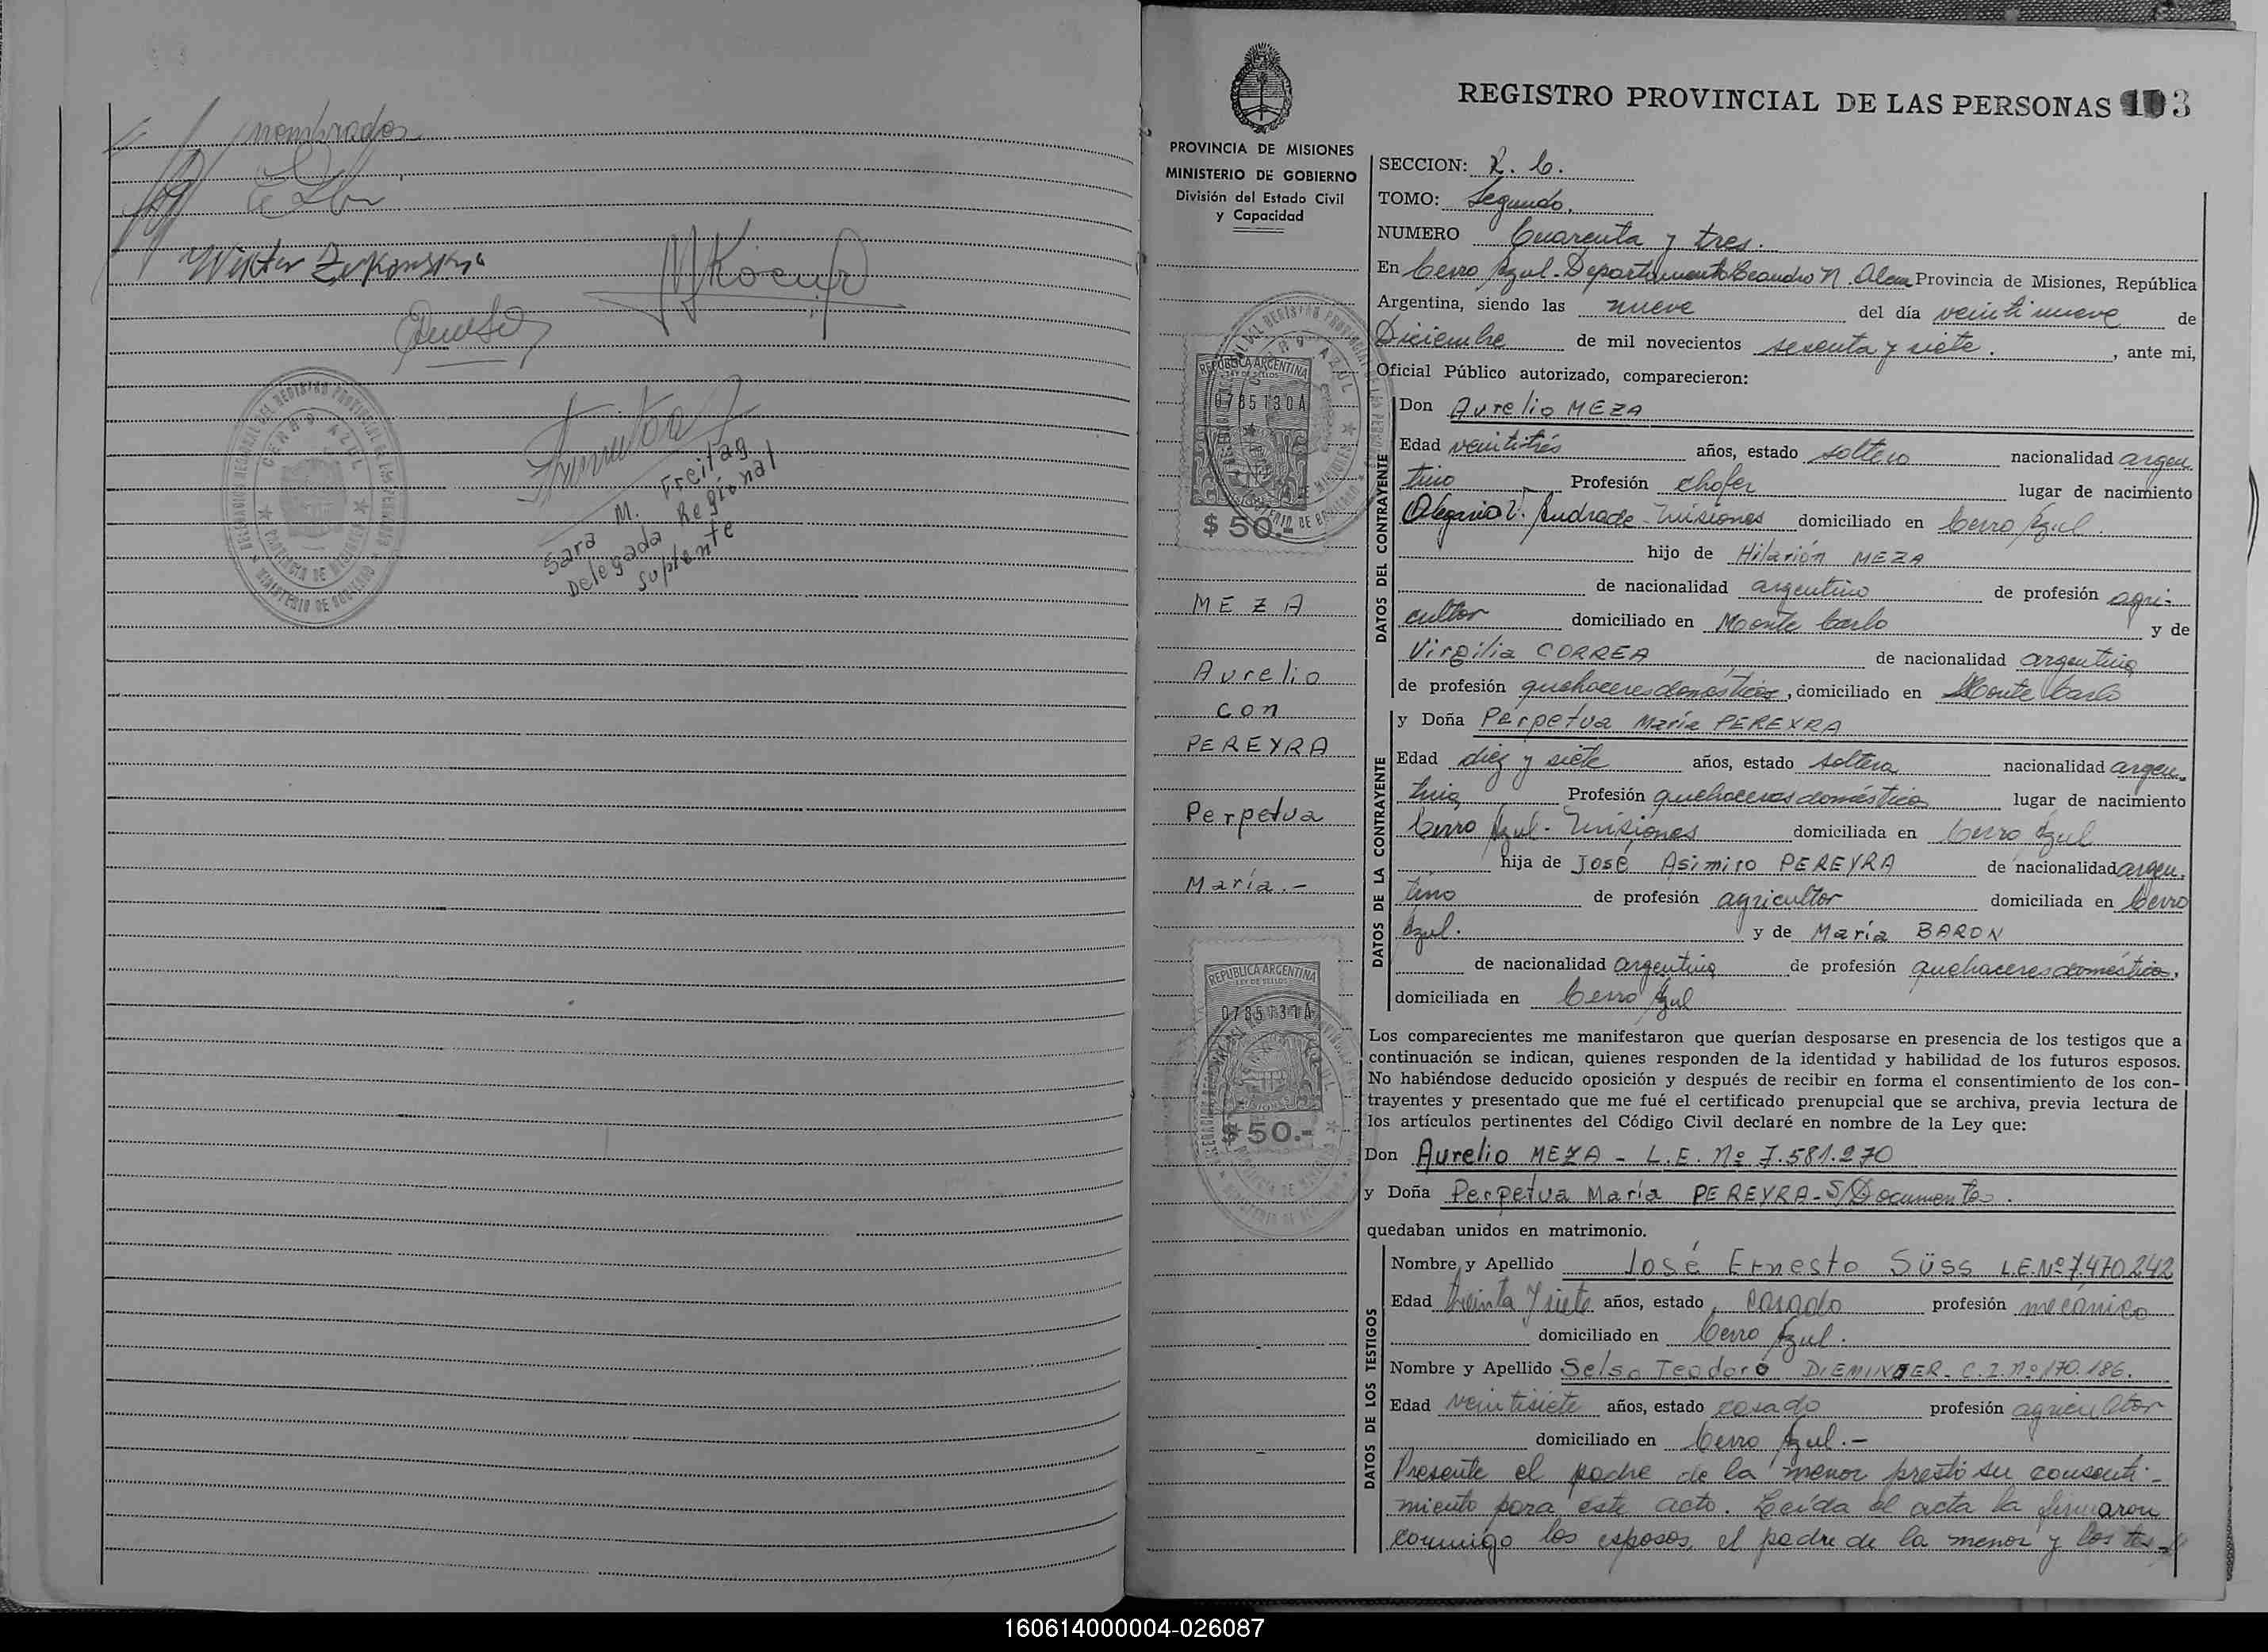 nombrados.
Wiktor
Sara M. Freitag
Delegada Regional
Suplente
DELEGACION REGIONAL DEL REGISTRO PROVINCIAL DE LAS PERSONAS
CERRO AZUL
PROVINCIA DE MISIONES
MINISTERIO DE GOBIERNO
REGISTRO PROVINCIAL DE LAS PERSONAS 103
PROVINCIA DE MISIONES
MINISTERIO DE GOBIERNO
División del Estado Civil
y Capacidad
REPUBLICA ARGENTINA
LEY DE SELLOS
0785130A
$ 50.-
MEZA
Aurelio
con
PEREYRA
Perpetua
María.-
REPUBLICA ARGENTINA
LEY DE SELLOS
0785131A
$ 50.-
SECCION: R. C.
TOMO: Segundo.
NUMERO Cuarenta y tres.
En Cerro Azul - Departamento Leandro N. Alem Provincia de Misiones, República
Argentina, siendo las nueve del día veintinueve de
Diciembre de mil novecientos sesenta y siete. , ante mi,
Oficial Público autorizado, comparecieron:
DATOS DEL CONTRAYENTE
Don Aurelio MEZA
Edad veintitrés años, estado soltero nacionalidad argen
tino Profesión chofer lugar de nacimiento
Olegario V. Andrade - Misiones domiciliado en Cerro Azul
hijo de Hilarión MEZA
de nacionalidad argentino de profesión agri-
cultor domiciliado en Monte Carlo y de
Virgilia CORREA de nacionalidad argentina
de profesión quehaceres domésticos, domiciliado en Monte Carlo
DATOS DE LA CONTRAYENTE
y Doña Perpetua María PEREYRA
Edad diez y siete años, estado soltera nacionalidad argen-
tina Profesión quehaceres domésticos lugar de nacimiento
Cerro Azul - Misiones domiciliada en Cerro Azul
hija de José Asimiro PEREYRA de nacionalidad argen-
tino de profesión agricultor domiciliada en Cerro
Azul. y de María BARON
de nacionalidad argentina de profesión quehaceres domésticos,
domiciliada en Cerro Azul
Los comparecientes me manifestaron que querían desposarse en presencia de los testigos que a
continuación se indican, quienes responden de la identidad y habilidad de los futuros esposos.
No habiéndose deducido oposición y después de recibir en forma el consentimiento de los con-
trayentes y presentado que me fué el certificado prenupcial que se archiva, previa lectura de
los artículos pertinentes del Código Civil declaré en nombre de la Ley que:
Don Aurelio MEZA - L.E. Nº 7.581.270
y Doña Perpetua María PEREYRA - S/Documentos.
quedaban unidos en matrimonio.
DATOS DE LOS TESTIGOS
Nombre y Apellido José Ernesto Süss L.E. Nº 7.470.242
Edad treinta y siete años, estado casado profesión mecánico
domiciliado en Cerro Azul.
Nombre y Apellido Selso Teodoro DIEMINGER - C.I. Nº 170.186.
Edad veintisiete años, estado casado profesión agricultor
domiciliado en Cerro Azul.-
Presente el padre de la menor prestó su consenti-
miento para este acto. Leída el acta la firmaron
conmigo los esposos, el padre de la menor y los tes-
160614000004-026087